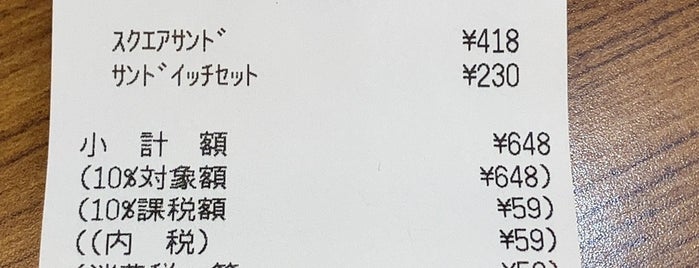 スクエアサンド ¥418
サンドイッチセット ¥230
小 計 額 ¥648
(10%対象額 ¥648)
(10%課税額 ¥59)
((内 税) ¥59)